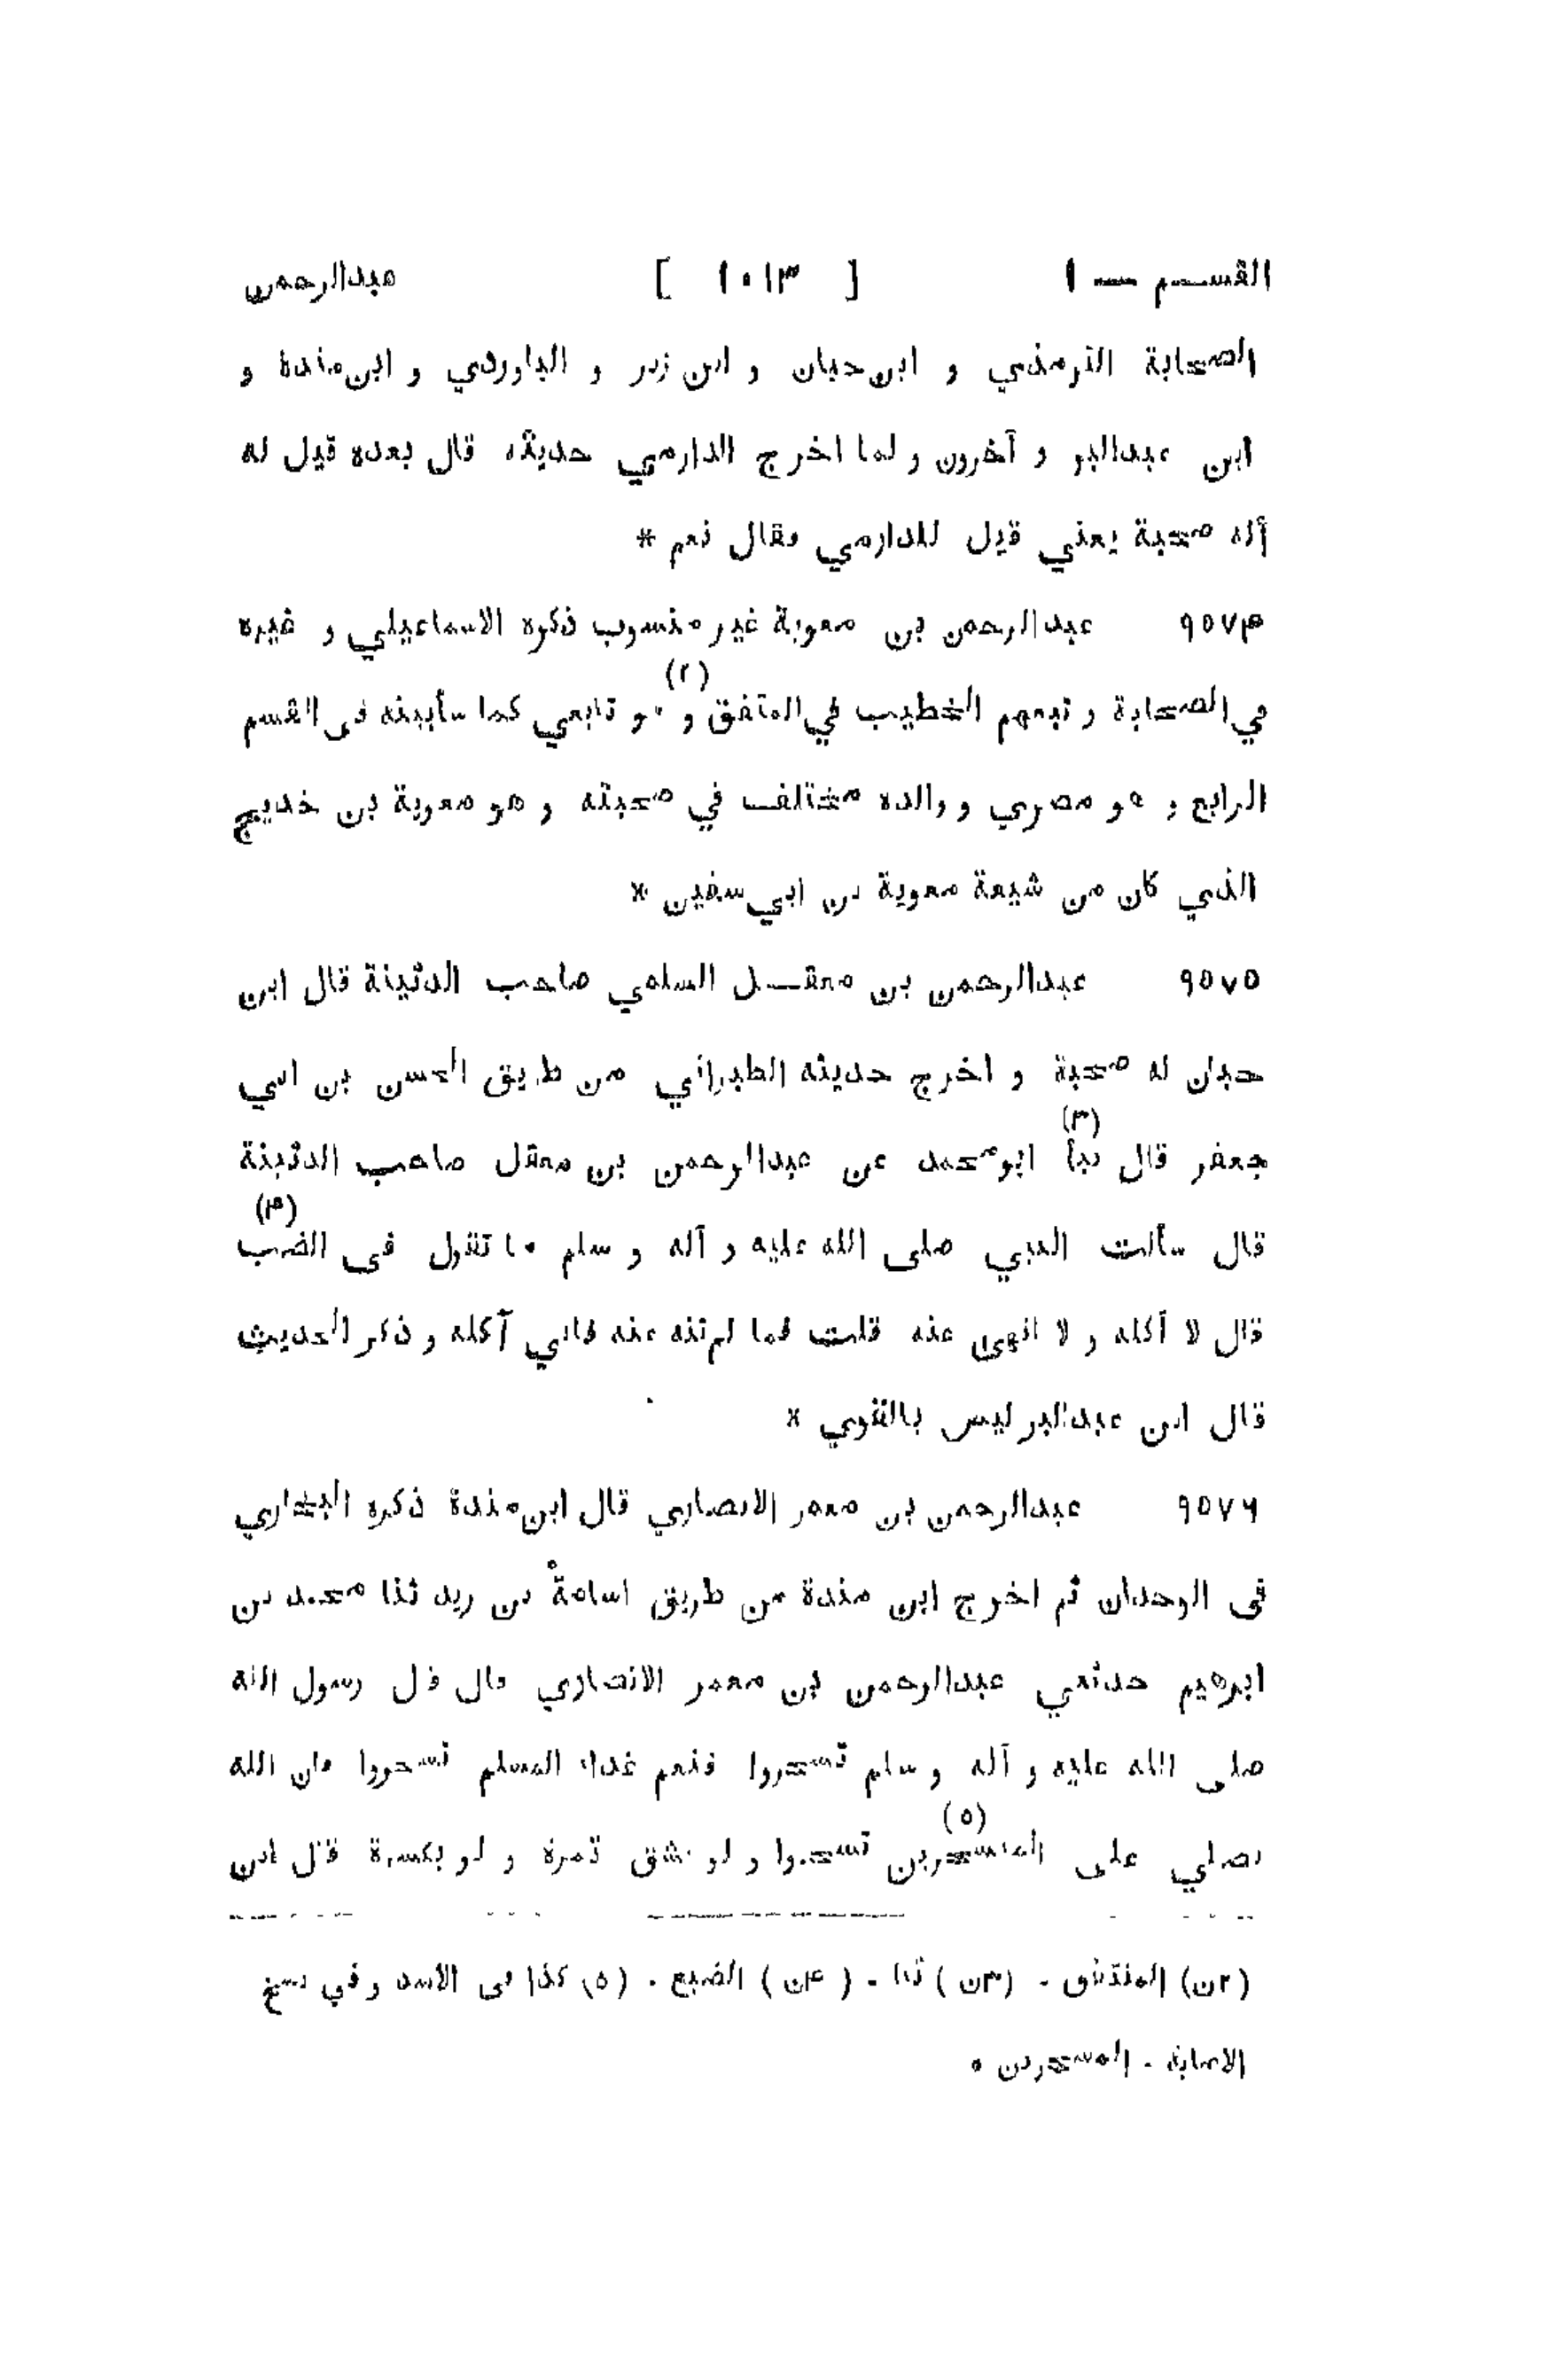 القســم — ۱ [ ۱۰۱۳ ] عبدالرحمن
الصحابة الترمذي و ابن حبان و ابن زبر و الباوردي و ابن مندة و
ابن عبدالبر و آخرون و لما اخرج الدارمي حديثه قال بعده قيل له
أله صحبة يعني قيل للدارمي فقال نعم *
۹۵۷۴ عبدالرحمن بن معوية غير منسوب ذكره الاسماعيلي و غيره
في الصحابة و تبعهم الخطيب في المتفق (۲) و هو تابعي كما سأبينه فى القسم
الرابع و هو مصري و والده مختلف في صحبته و هو معوية بن خديج
الذي كان من شيعة معوية بن ابي سفين *
۹۵۷۵ عبدالرحمن بن معقــل السلمي صاحب الدثينة قال ابن
حبان له صحبة و اخرج حديثه الطبراني من طريق الحسن بن ابي
جعفر قال نبأ (۳) ابو محمد عن عبدالرحمن بن معقل صاحب الدثينة
قال سألت النبي صلى الله عليه و آله و سلم ما تقول فى الضب (۴)
قال لا آكله و لا انهى عنه قلت فما لم تنه عنه فاني آكله و ذكر الحديث
قال ابن عبدالبر ليس بالقوي *
۹۵۷۶ عبدالرحمن بن معمر الانصاري قال ابن مندة ذكره البخاري
فى الوحدان ثم اخرج ابن مندة من طريق اسامة بن زيد ثنا محمد بن
ابرهيم حدثني عبدالرحمن بن معمر الانصاري قال قال رسول الله
صلى الله عليه و آله و سلم تسحروا فنعم غداء المسلم تسحروا فان الله
يصلي على المتسحرين (۵) تسحروا و لو بشق تمرة و لو بكسرة قال ابن
(۲ن) المنتفق - (۳ن) ثنا - (۴ن) الضبع - (۵) كذا فى الاسد و في نسخ
الاصابة - المسحرين •